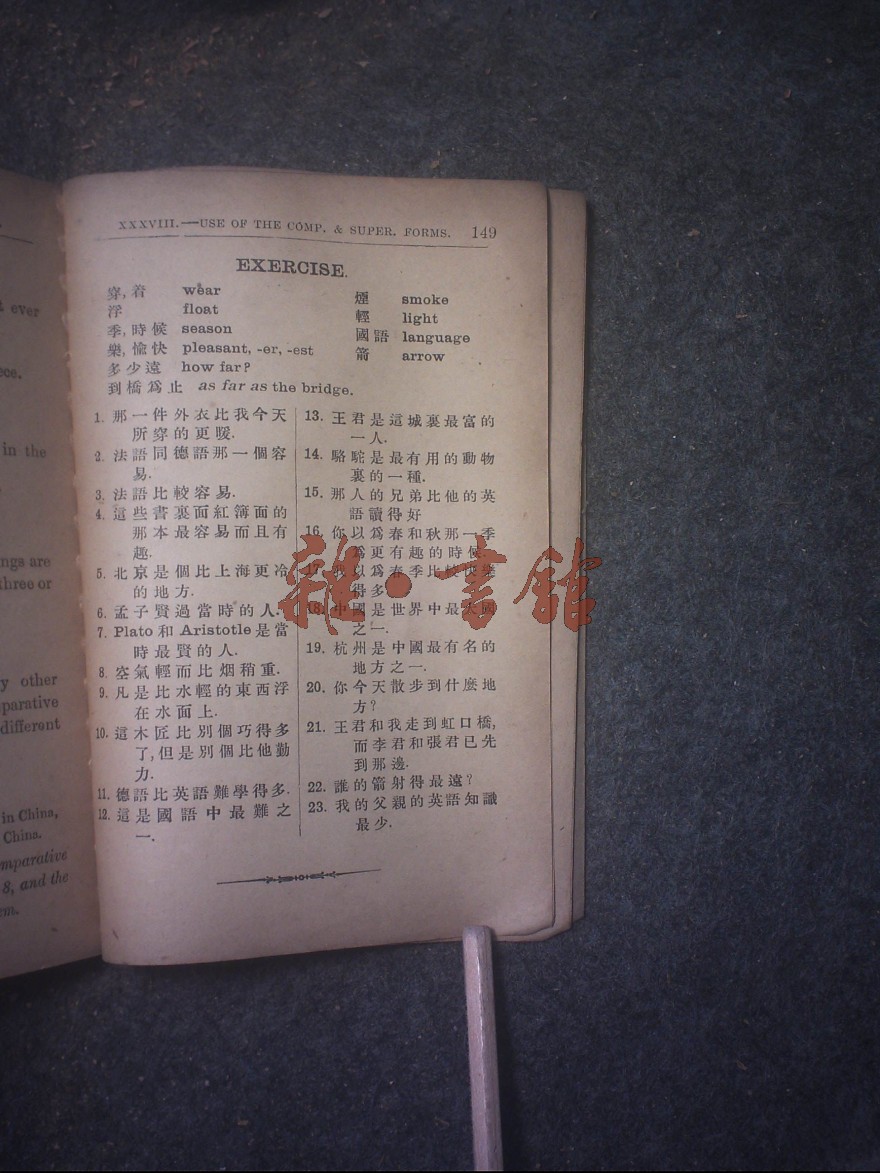 t ever
ece.
in the
ngs are
three or
y other
parative
different
in China,
China.
mparative
8, and the
em.
XXXVIII.—USE OF THE COMP. & SUPER. FORMS. 149
EXERCISE.
穿,着 wear
浮 float
季,時候 season
樂,愉快 pleasant, -er, -est
多少遠 how far?
到橋爲止 as far as the bridge.
煙 smoke
輕 light
國語 language
箭 arrow
1. 那一件外衣比我今天
所穿的更暖.
2. 法語同德語那一個容
易.
3. 法語比較容易.
4. 這些書裏面紅簿面的
那本最容易而且有
趣.
5. 北京是個比上海更冷
的地方.
6. 孟子賢過當時的人.
7. Plato 和 Aristotle 是當
時最賢的人.
8. 空氣輕而比烟稍重.
9. 凡是比水輕的東西浮
在水面上.
10. 這木匠比別個巧得多
了,但是別個比他勤
力.
11. 德語比英語難學得多.
12. 這是國語中最難之
一.
13. 王君是這城裏最富的
一人.
14. 駱駝是最有用的動物
裏的一種.
15. 那人的兄弟比他的英
語讀得好
16. 你以爲春和秋那一季
爲更有趣的時候.
17. 我以爲春季比較快樂
得多
18. 中國是世界中最大國
之一.
19. 杭州是中國最有名的
地方之一.
20. 你今天散步到什麽地
方?
21. 王君和我走到虹口橋,
而李君和張君已先
到那邊.
22. 誰的箭射得最遠?
23. 我的父親的英語知識
最少.
雜·書館